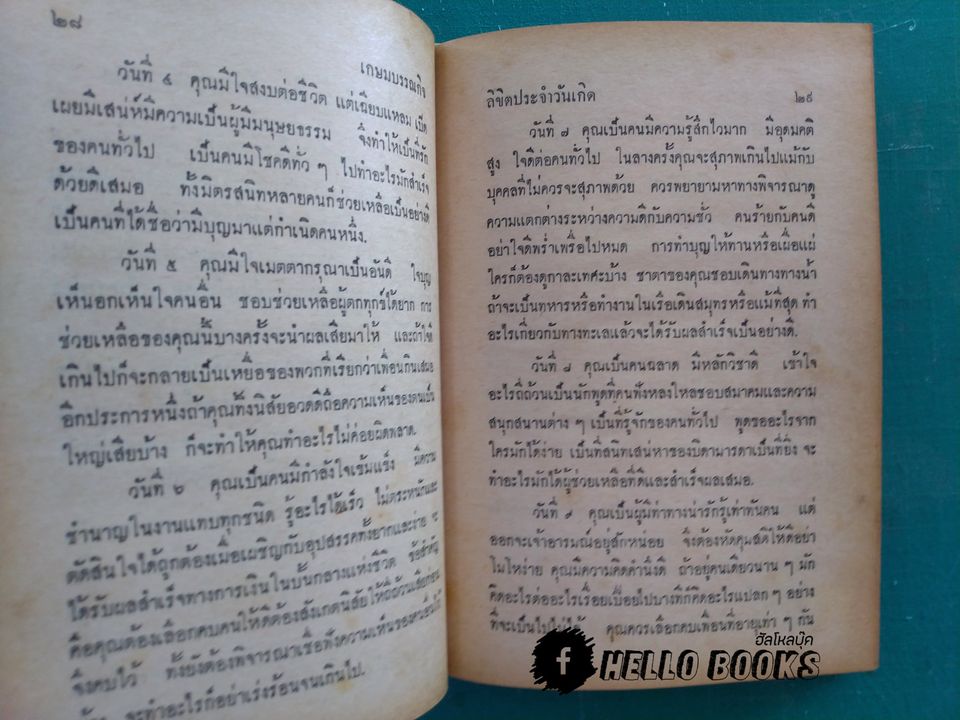 ๒๘
เกษมบรรณกิจ
วันที่ ๔ คุณมีใจสงบต่อชีวิต แต่เฉียบแหลม เปิด
เผยมีเสน่ห์มีความเป็นผู้มีมนุษยธรรม จึงทำให้เป็นที่รัก
ของคนทั่วไป เป็นคนมีโชคดีทั่ว ๆ ไปทำอะไรมักสำเร็จ
ด้วยดีเสมอ ทั้งมิตรสนิทหลายคนก็ช่วยเหลือเป็นอย่างดี
เป็นคนที่ได้ชื่อว่ามีบุญมาแต่กำเนิดคนหนึ่ง.
วันที่ ๕ คุณมีใจเมตตากรุณาเป็นอันดี ใจบุญ
เห็นอกเห็นใจคนอื่น ชอบช่วยเหลือผู้ตกทุกข์ได้ยาก การ
ช่วยเหลือของคุณนี้บางครั้งจะนำผลเสียมาให้ และถ้าใจดี
เกินไปก็จะกลายเป็นเหยื่อของพวกที่เรียกว่าเพื่อนกินเสมอ
อีกประการหนึ่งถ้าคุณทิ้งนิสัยอวดดีถือความเห็นของตนเป็น
ใหญ่เสียบ้าง ก็จะทำให้คุณทำอะไรไม่ค่อยผิดพลาด.
วันที่ ๖ คุณเป็นคนมีกำลังใจเข้มแข็ง มีความ
ชำนาญในงานแทบทุกชนิด รู้อะไรได้เร็ว ไม่ตระหนักและ
ตัดสินใจได้ถูกต้องเมื่อเผชิญกับอุปสรรคทั้งยากและง่าย จะ
ได้รับผลสำเร็จทางการเงินในบั้นกลางแห่งชีวิต ข้อสำคัญ
คือคุณต้องเลือกคบคนให้ดีต้องสังเกตนิสัยให้ถี่ถ้วนเสียก่อน
จึงคบไว้ ทั้งยังต้องพิจารณาเชื่อฟังความเห็นของคนอื่นไว้
บ้าง จะทำอะไรก็อย่าเร่งร้อนจนเกินไป.
ลิขิตประจำวันเกิด ๒๙
วันที่ ๗ คุณเป็นคนมีความรู้สึกไวมาก มีอุดมคติ
สูง ใจดีต่อคนทั่วไป ในลางครั้งคุณจะสุภาพเกินไปแม้กับ
บุคคลที่ไม่ควรจะสุภาพด้วย ควรพยายามหาทางพิจารณาดู
ความแตกต่างระหว่างความดีกับความชั่ว คนร้ายกับคนดี
อย่าใจดีพร่ำเพรื่อไปหมด การทำบุญให้ทานหรือเผื่อแผ่
ใครก็ต้องดูกาละเทศะบ้าง ชาตาของคุณชอบเดินทางทางน้ำ
ถ้าจะเป็นทหารหรือทำงานในเรือเดินสมุทรหรือแม้ที่สุด ทำ
อะไรเกี่ยวกับทางทะเลแล้วจะได้รับผลสำเร็จเป็นอย่างดี.
วันที่ ๘ คุณเป็นคนฉลาด มีหลักวิชาดี เข้าใจ
อะไรถี่ถ้วนเป็นนักพูดที่คนฟังหลงใหลชอบสมาคมและความ
สนุกสนานต่าง ๆ เป็นที่รู้จักของคนทั่วไป พูดขออะไรจาก
ใครมักได้ง่าย เป็นที่สนิทเสน่หาของบิดามารดาเป็นที่ยิ่ง จะ
ทำอะไรมักได้ผู้ช่วยเหลือที่ดีและสำเร็จผลเสมอ.
วันที่ ๙ คุณเป็นผู้มีท่าทางน่ารักรู้เท่าทันคน แต่
ออกจะเจ้าอารมณ์อยู่สักหน่อย จึงต้องหัดคุมสติให้ดีอย่า
โมโหง่าย คุณมีความคิดคำนึงดี ถ้าอยู่คนเดียวนาน ๆ มัก
คิดอะไรต่ออะไรเรื่อยเปื่อยไปบางทีก็คิดอะไรแปลก ๆ อย่าง
ที่จะเป็นไปไม่ได้ คุณควรเลือกคบเพื่อนที่อายุเท่า ๆ กัน
ฮัลโหลบุ๊ค
f HELLO BOOKS